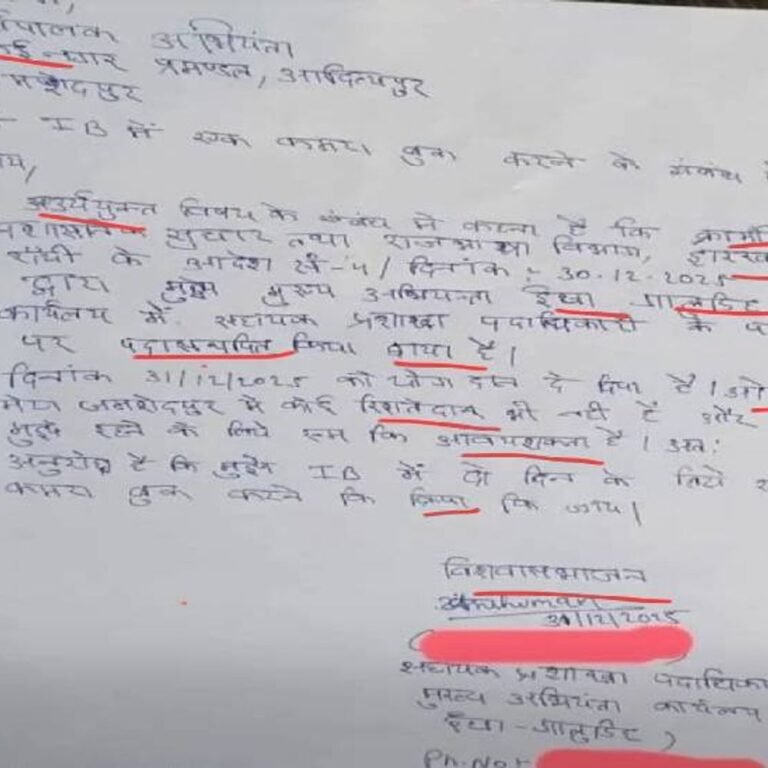 पालक अभियंता
प्रमण्डल, आदित्यपुर
मशेदपुर
IB में एक कमरा बुक करने के संबंध में
विषय के संबंध में कहना है कि कार्मी
प्रशासनिक सुधार तथा राजभाषा विभाग, झारख
रांची के आदेश सं-५/ दिनांक :- 30.12.2025
द्वारा मुझे मुख्य अभियन्ता ईचा गालुडिह
कार्यलय में सहायक प्रशाखा पदाधिकारी के प
पर पदास्थापित किया गाया है।
दिनांक 31/12/2025 को योगदान दे दिया है। औ
मेरा जमशेदपुर में कोई रिशतेदार भी नहीं है और
मुझे रहने के लिये रूम कि आवयशकता है। अत:
अनुरोध है कि मुझे IB में दो दिन के लिये
कमरा बुक करने कि क्रिपा कि जाय।
विशवासभाजन
31/12/2025
सहायक प्रशाखा पदाधिका
मुख्य अभियंता कार्यलय
ईचा-गालुडिह)
Ph.No: